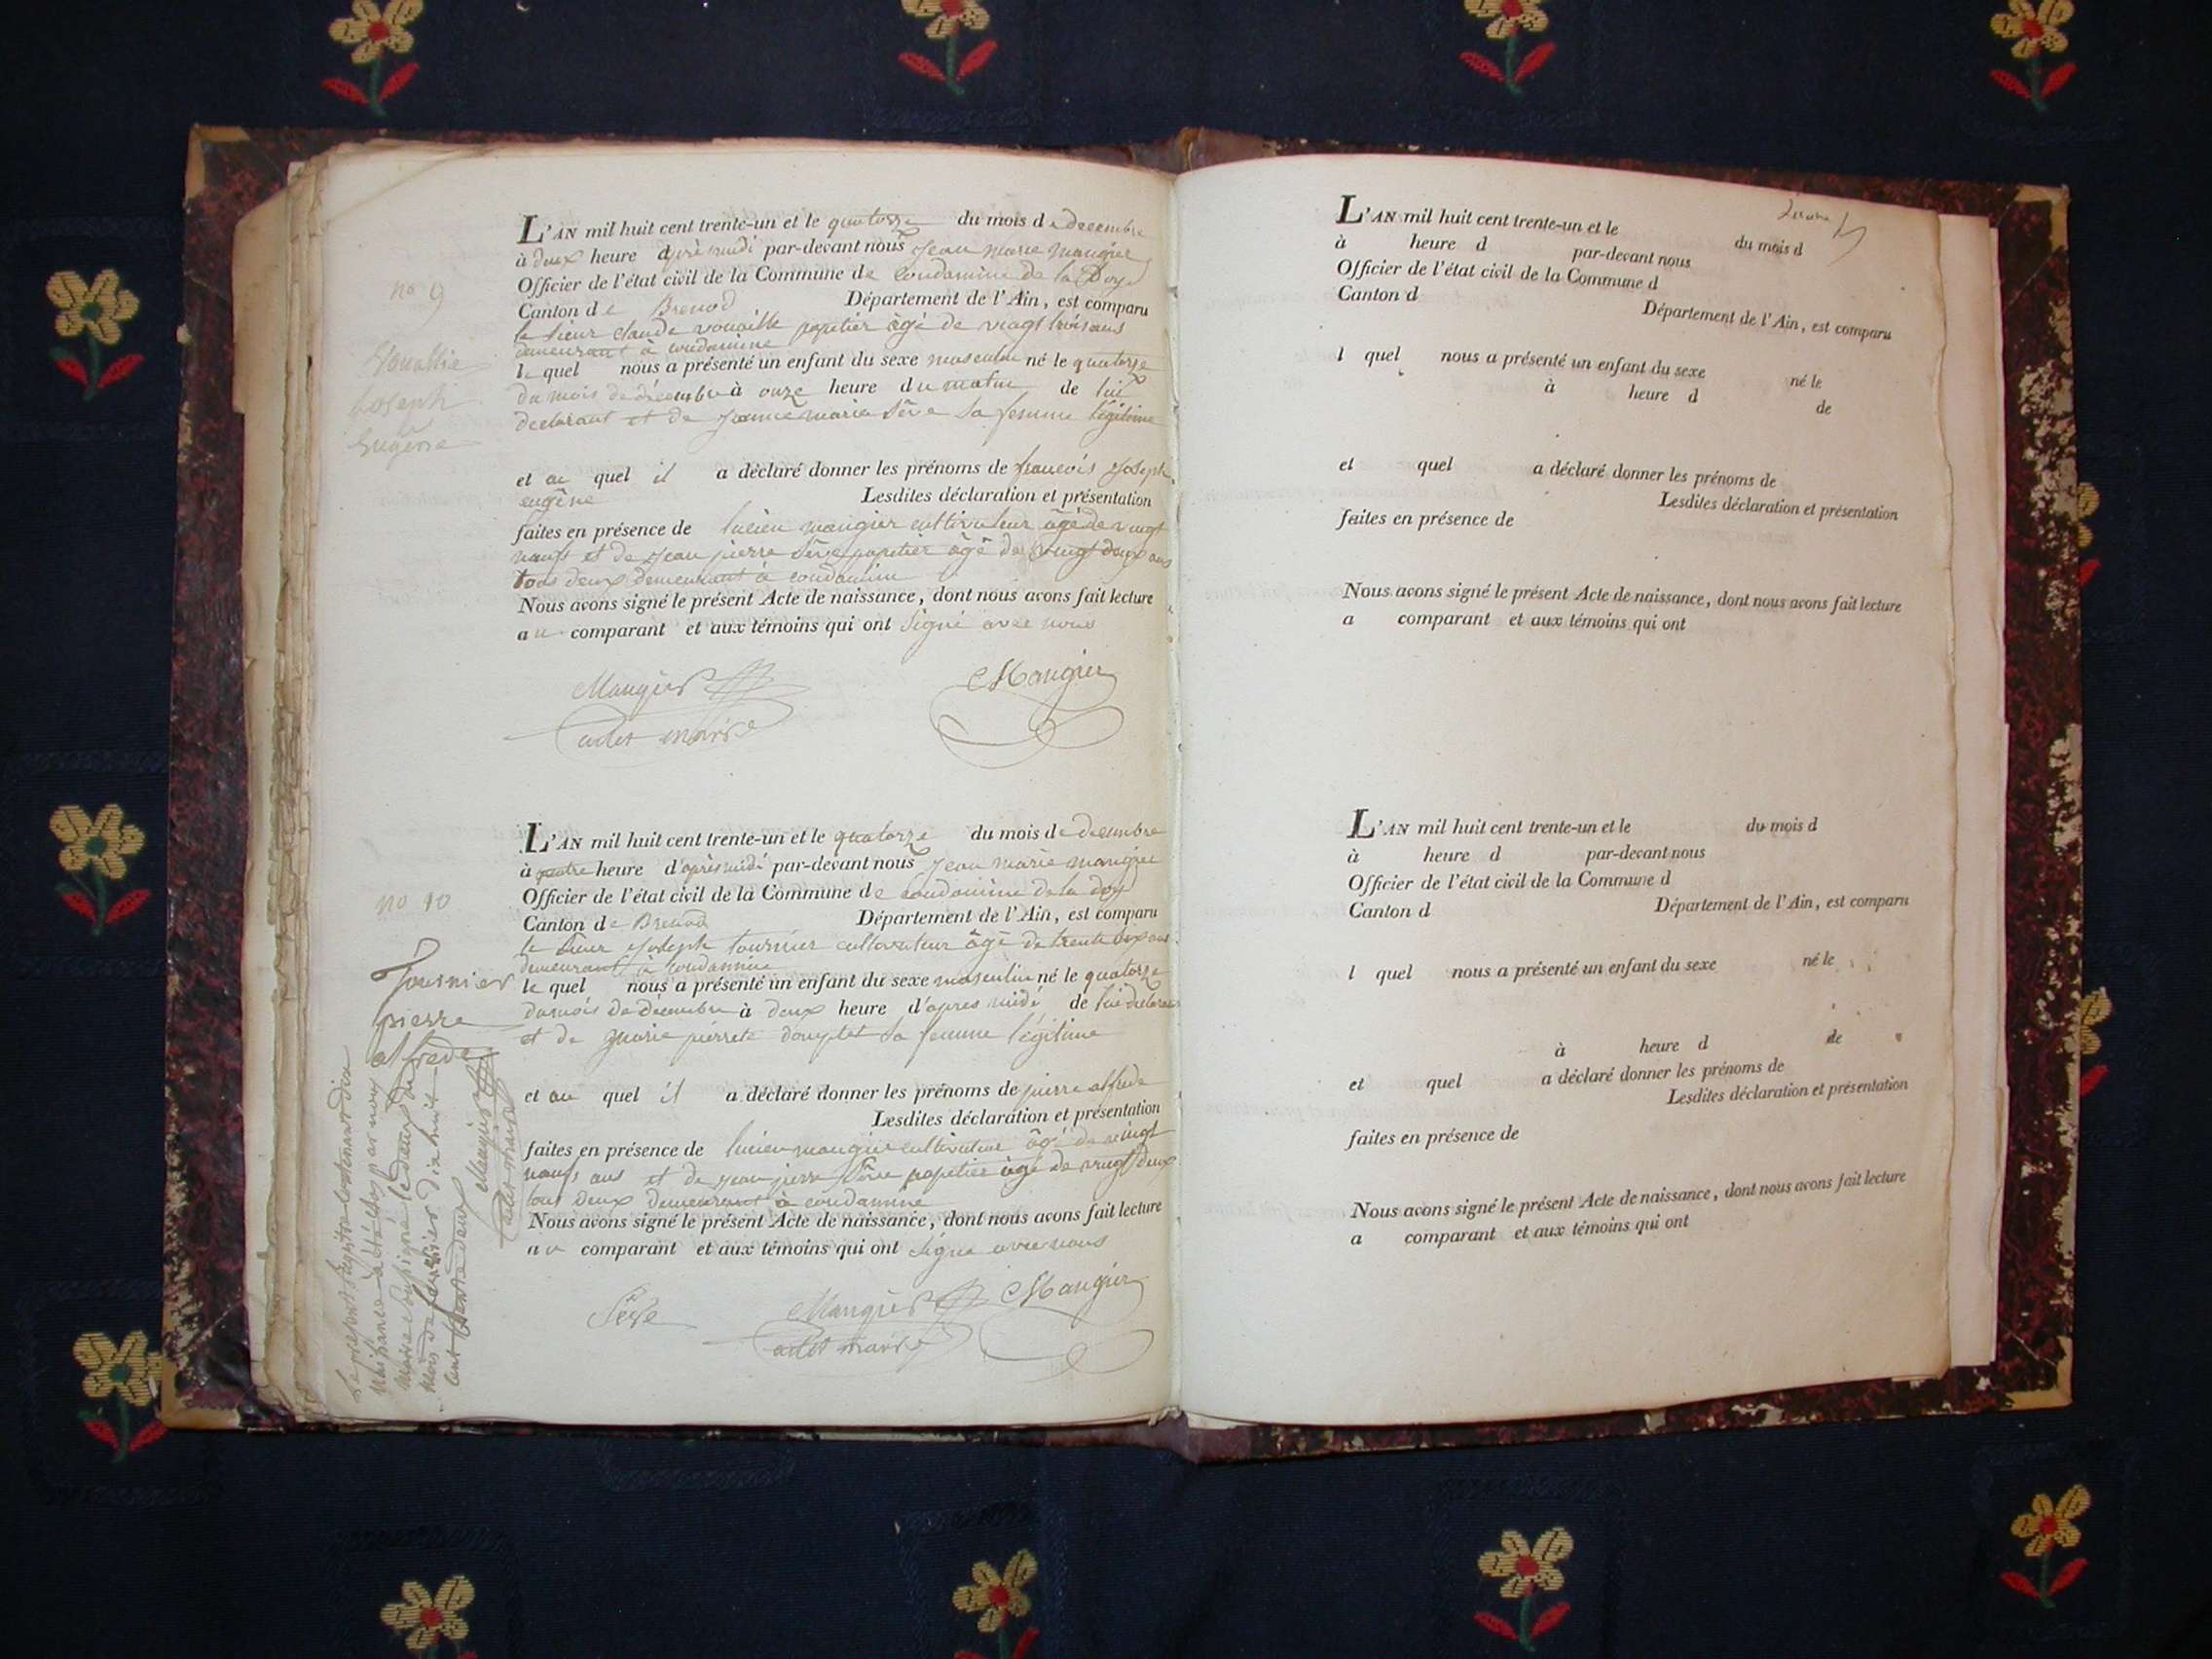 L'AN mil huit cent trente-un et le quatorze du mois de decembre
à deux heure après midi par-devant nous Jean marie maugier
Officier de l'état civil de la Commune de Condamine de la Doye
Canton de Brenod Département de l'Ain, est comparu
le sieur claude vouaille papetier âgé de vingt trois ans
demeurant à condamine
le quel nous a présenté un enfant du sexe masculin né le quatorze
du mois de décembre à onze heure du matin de lui
declarant et de Jeanne marie Sêve sa femme légitime
et au quel il a déclaré donner les prénoms de francois Joseph
eugêne Lesdites déclaration et présentation
faites en présence de lucien maugier cultivateur âgé de vingt
neufs et de Jean pierre Sêve papetier âgé de vingt deux ans
tous deux demeurant à condamine
Nous avons signé le présent Acte de naissance, dont nous avons fait lecture
au comparant et aux témoins qui ont signé avec nous
Maugier Maugier
adit maire
n° 9
Joseph
Eugêne
L'AN mil huit cent trente-un et le quatorze du mois de decembre
à quatre heure d'après midi par-devant nous Jean marie maugier
Officier de l'état civil de la Commune de Condamine de la doye
Canton de Brenod Département de l'Ain, est comparu
le sieur Joseph tournier cultivateur âgé de trente ans
demeurant à Condamine
le quel nous a présenté un enfant du sexe masculin né le quatorze
du mois de décembre à deux heure d'après midi de lui declarant
et de marie pierrete sa femme légitime
et au quel il a déclaré donner les prénoms de pierre alfrede
Lesdites déclaration et présentation
faites en présence de lucien maugier cultivateur âgé de vingt
neufs ans et de Jean pierre Sêve papetier âgé de vingt deux
tous deux demeurant à condamine
Nous avons signé le présent Acte de naissance, dont nous avons fait lecture
au comparant et aux témoins qui ont signé avec nous
Sêve Maugier Maugier
adit maire
n° 10
Tournier
pierre
alfrede
Le présent Registre contenant dix
naissances a été clos par moy
maire soussigné le deux du
mois de janvier dix huit
cent trente deux
Maugier
adit maire
L'AN mil huit cent trente-un et le du mois d
à heure d par-devant nous
Officier de l'état civil de la Commune d
Canton d Département de l'Ain, est comparu
l quel nous a présenté un enfant du sexe né le
à heure d de
et quel a déclaré donner les prénoms de
Lesdites déclaration et présentation
faites en présence de
Nous avons signé le présent Acte de naissance, dont nous avons fait lecture
a comparant et aux témoins qui ont
L'AN mil huit cent trente-un et le du mois d
à heure d par-devant nous
Officier de l'état civil de la Commune d
Canton d Département de l'Ain, est comparu
l quel nous a présenté un enfant du sexe né le
à heure d de
et quel a déclaré donner les prénoms de
Lesdites déclaration et présentation
faites en présence de
Nous avons signé le présent Acte de naissance, dont nous avons fait lecture
a comparant et aux témoins qui ont